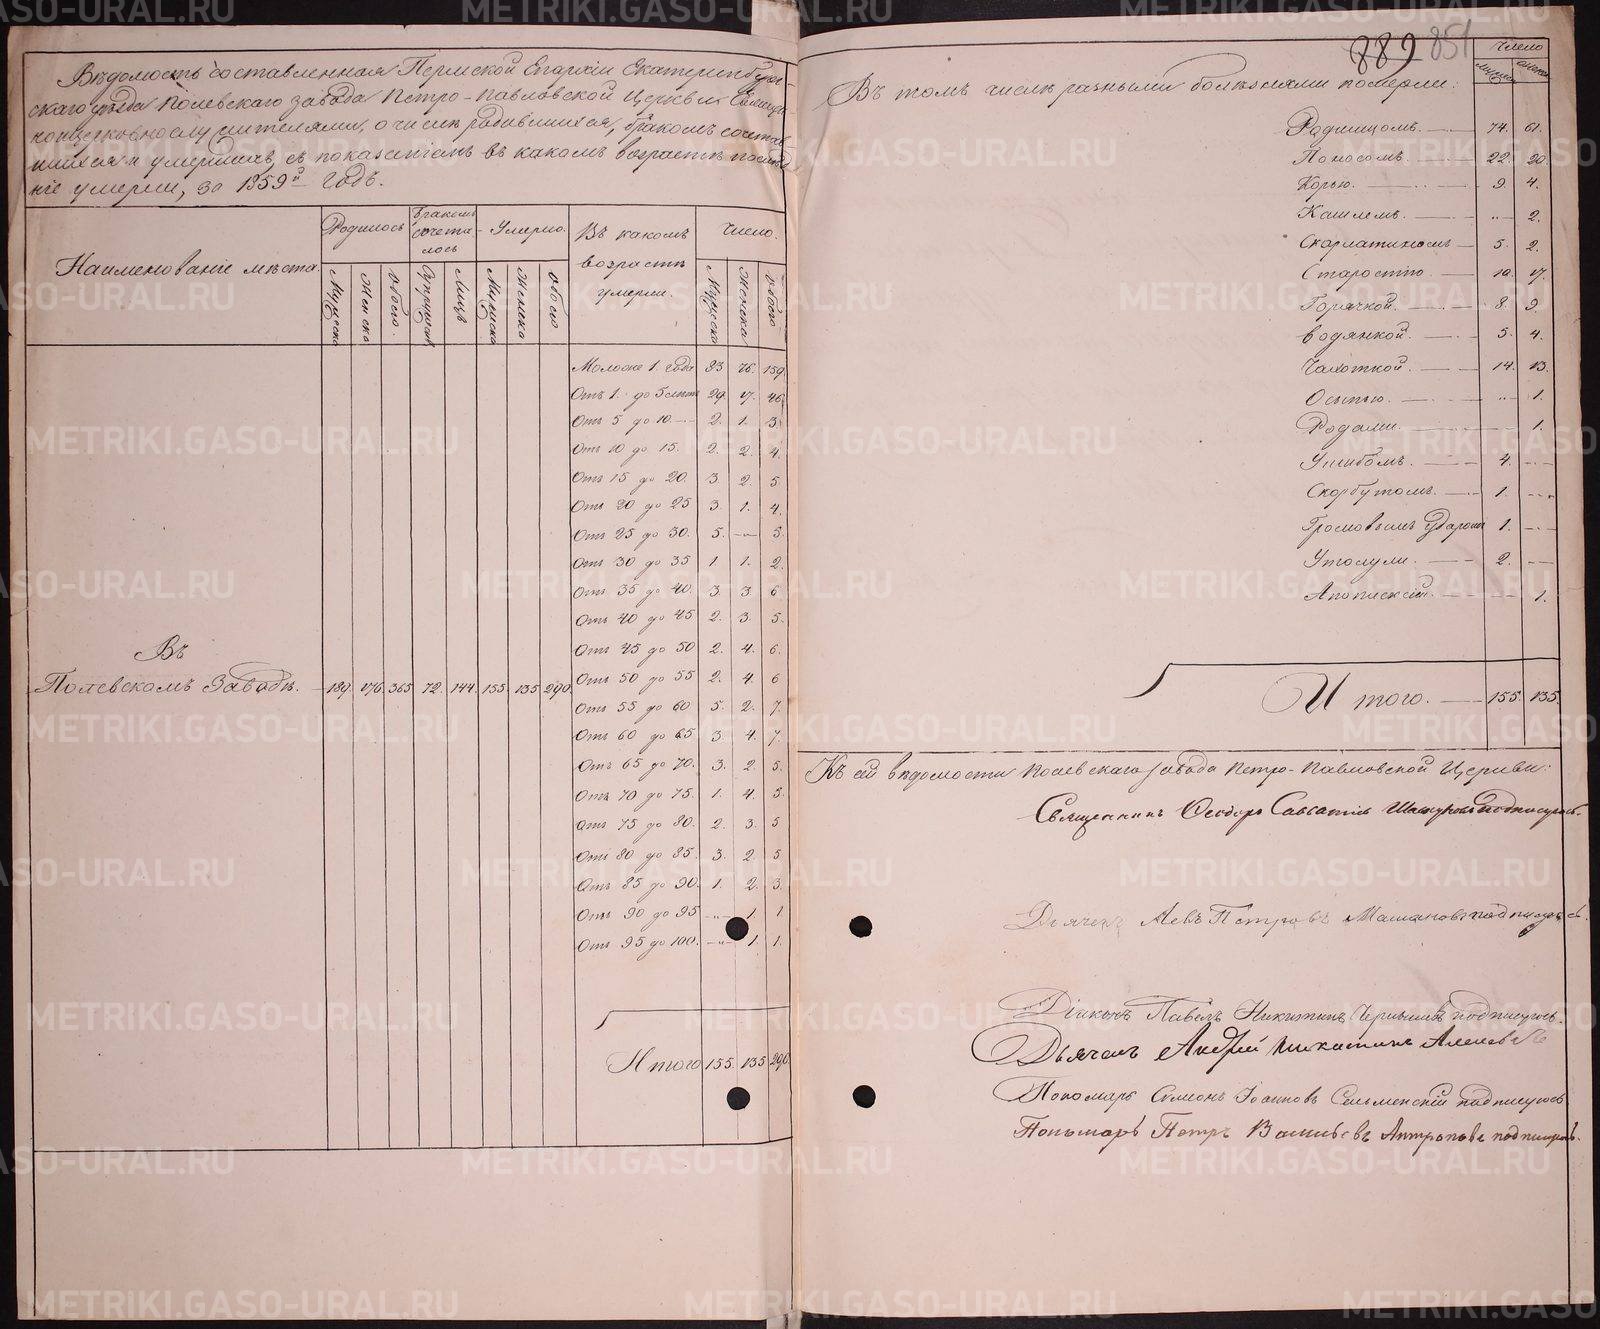 Вѣдомость составленная Пермской Епархіи Екатеринбург-
скаго уѣзда Полевскаго завода Петро-Павловской Церкви Священ-
ноцерковнослужителями, о числѣ родившихся, бракомъ сочетав-
шихся и умершихъ, съ показаніемъ въ какомъ возрастѣ послѣд-
ніе умерли, за 1859й годъ.
Наименованіе мѣста.
Родилось
Бракомъ сочета-лось
Умерло.
Въ какомъ возрастѣ умерли.
Число.
Мужеска
Женска
Обоего.
Супружествъ
Лицъ
Мужеска
Женска
Обоего
Мужеска
Женска
Обоего
Моложе 1. года 83 76. 159.
Отъ 1. до 5 лѣтъ 29. 17. 46.
Отъ 5 до 10. — 2. 1. 3.
Отъ 10 до 15. 2. 2. 4.
Отъ 15 до 20. 3. 2. 5.
Отъ 20 до 25 3. 1. 4.
Отъ 25 до 30. 5. — 5.
Отъ 30 до 35 1. 1. 2.
Отъ 35 до 40. 3. 3 6
Отъ 40 до 45 2. 3. 5.
Отъ 45 до 50 2. 4. 6.
Въ
Полевскомъ Заводѣ. — 189. 176. 365 72. 144. 155. 135 290.
Отъ 50 до 55 2. 4. 6
Отъ 55 до 60 5. 2. 7.
Отъ 60 до 65 3. 4. 7.
Отъ 65 до 70. 3. 2. 5.
Отъ 70 до 75. 1. 4. 5.
Отъ 75 до 80. 2. 3. 5
Отъ 80 до 85. 3. 2. 5
Отъ 85 до 90. 1. 2. 3.
Отъ 90 до 95 — 1. 1.
Отъ 95 до 100. — 1. 1.
Итого 155. 135 290
889 851
Въ томъ числѣ разными болѣзнями померли:
Число
Родимцомъ. — 74. 61.
Поносомъ. — 22. 20.
Корью. — 9. 4.
Кашлемъ. — „ 2.
Скарлатиномъ — 5. 2.
Старостію. — 10. 17.
Горячкой. — 8. 9.
Водянкой. — 5. 4.
Чахоткой. — 14. 13.
Осыпью. — „ 1.
Родами. — 1.
Ушибомъ. — 4. —
Скорбутомъ. — 1. —
Громовымъ ударомъ 1. —
Утонули. — 2. —
Апоплексіи. — 1.
Итого. — 155. 135.
Къ сей вѣдомости Полевскаго завода Петро-Павловской Церкви:
Священникъ Ѳеодоръ Савватіевъ подписуюсь.
Дьячекъ Левъ Петровъ подписуюсь.
Діаконъ Павелъ Никитинъ подписуюсь.
Дьячекъ Андрей Никитинъ
Пономарь Симеонъ Іоанновъ Сельменскій подписуюсь
Пономарь Петръ Васильевъ Антроповъ подписуюсь.
METRIKI.GASO-URAL.RU